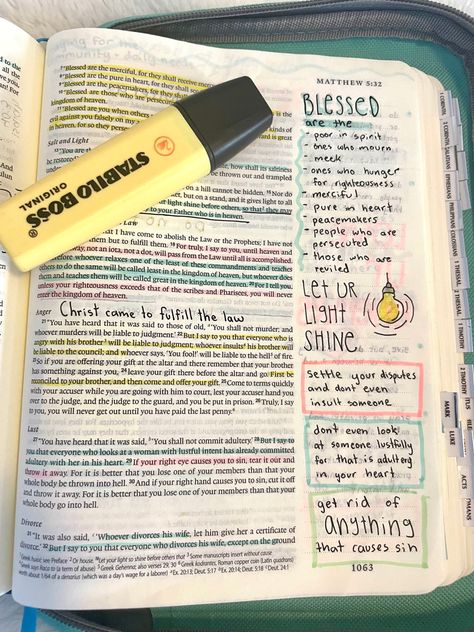 MATTHEW 5:32
"Blessed are the merciful, for they shall receive
"Blessed are the pure in heart, for they shall
"Blessed are the peacemakers, for they shall
"Blessed are those who are persecuted
kingdom of heaven.
"Blessed are you when others
evil against you falsely on my
in heaven, for so they
STABILO BOSS
ORIGINAL
Salt and Light
"You are
be restored
how shall its saltiness
thrown out and trampled
on a hill cannot be hidden. Nor do
on a stand, and it gives light to all
light shine before others, so that they may
to your Father who is in heaven.
I have come to abolish the Law or the Prophets; I have not
them but to fulfill them. 18 For truly, I say to you, until heaven and
not an iota, not a dot, will pass from the Law until all is accomplished.
whoever relaxes one of the least of these commandments and teaches
others to do the same will be called least in the kingdom of heaven, but whoever does
them and teaches them will be called great in the kingdom of heaven. 20 For I tell you,
unless your righteousness exceeds that of the scribes and Pharisees, you will never
enter the kingdom of heaven.
Anger Christ came to fulfill the law
21 "You have heard that it was said to those of old, 'You shall not murder; and
whoever murders will be liable to judgment.' 22 But I say to you that everyone who is
angry with his brother will be liable to judgment; whoever insults his brother will
be liable to the council; and whoever says, 'You fool!' will be liable to the hell of fire.
23 So if you are offering your gift at the altar and there remember that your brother
has something against you, 24 leave your gift there before the altar and go. First be
reconciled to your brother, and then come and offer your gift. 25 Come to terms quickly
with your accuser while you are going with him to court, lest your accuser hand you
over to the judge, and the judge to the guard, and you be put in prison. 26 Truly, I say
to you, you will never get out until you have paid the last penny.
Lust
27 "You have heard that it was said, 'You shall not commit adultery.' 28 But I say to
you that everyone who looks at a woman with lustful intent has already committed
adultery with her in his heart. 29 If your right eye causes you to sin, tear it out and
throw it away. For it is better that you lose one of your members than that your
whole body be thrown into hell. 30 And if your right hand causes you to sin, cut it off
and throw it away. For it is better that you lose one of your members than that your
whole body go into hell.
Divorce
31 "It was also said, 'Whoever divorces his wife, let him give her a certificate of
divorce.' 32 But I say to you that everyone who divorces his wife, except on the ground
BLESSED
are the
- poor in spirit
- ones who mourn
- meek
- ones who hunger
for righteousness
- merciful
- pure in heart
- peacemakers
- people who are
persecuted
- those who are
reviled
LET UR
LIGHT
SHINE
Settle your disputes
and don't even
insult someone
don't even look
at someone lustfully
for that is adultery
in your heart
get rid of
ANYTHING
that causes sin
1063
MARK
LUKE
ACTS